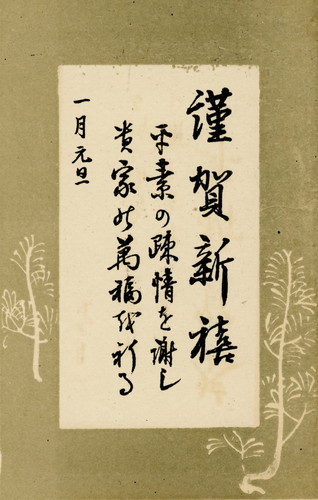 謹賀新禧
平素の疎情を謝し
貴家の萬福を祈る
一月元旦